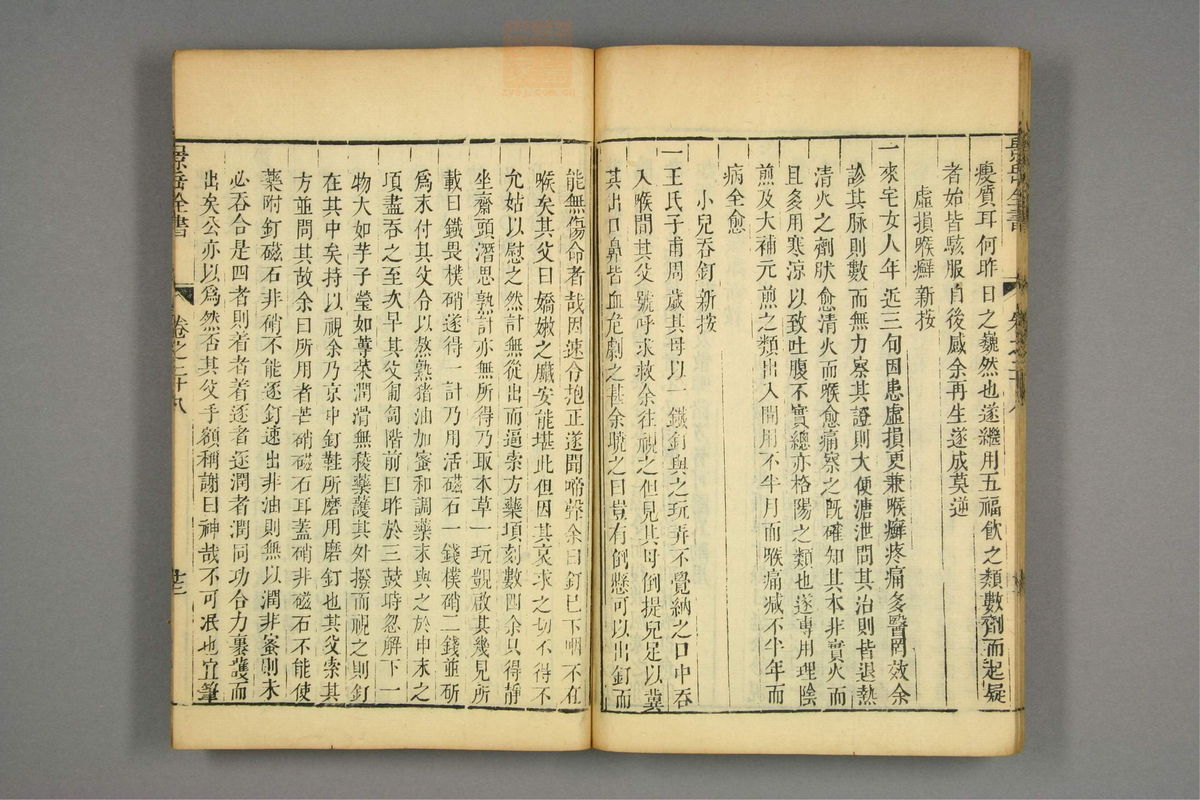 瘦質耳何昨日之巍然也遂繼用五福飲之類數劑而起疑
者始皆駭服自後感余再生遂成莫逆
虛損喉癬新按
一來宅女人年近三旬因患虛損更兼喉癬疼痛多醫罔效余
診其脉則數而無力察其證則大便溏泄問其治則皆退熱
清火之劑然愈清火而喉愈痛察之既確知其本非實火而
且多用寒涼以致吐腹不實總亦格陽之類也遂專用理陰
煎及大補元煎之類出入間用不半月而喉痛減不半年而
病全愈
小兒吞釘新按
一王氏子甫周歲其母以一鐵釘與之玩弄不覺納之口中吞
入喉間其父號呼求救余往視之但見其母倒提兒足以冀
其出口鼻皆血危劇之甚余曉之曰豈有倒懸可以出釘而
能無傷命者哉因速令抱正遂聞啼聲余曰釘已下咽不在
喉矣其父曰嬌嫩之臟安能堪此但因其哀求之切不得不
允姑以慰之然計無從出而逼索方藥頃刻數四余只得靜
坐齋頭潛思熟計亦無所得乃取本草一玩覬啟其幾見所
載曰鐵畏樸硝遂得一計乃用活磁石一錢樸硝二錢並研
爲末付其父令以熬熟猪油加蜜和調藥末與之於申末之
項盡吞之至次早其父匍匐階前曰昨於三鼓時忽解下一
物大如芋子瑩如蓴菜潤滑無稜藥護其外撥而視之則釘
在其中矣持以視余乃京中釘鞋所磨用磨釘也其父索其
方並問其故余曰所用者芒硝磁石耳蓋硝非磁石不能使
藥附釘磁石非硝不能逐釘速出非油則無以潤非蜜則未
必吞合是四者則着者着逐者逐潤者潤同功合力裹護而
出矣公亦以爲然否其父手額稱謝曰神哉不可泯也宜筆
景岳全書
卷之二十八
廿三